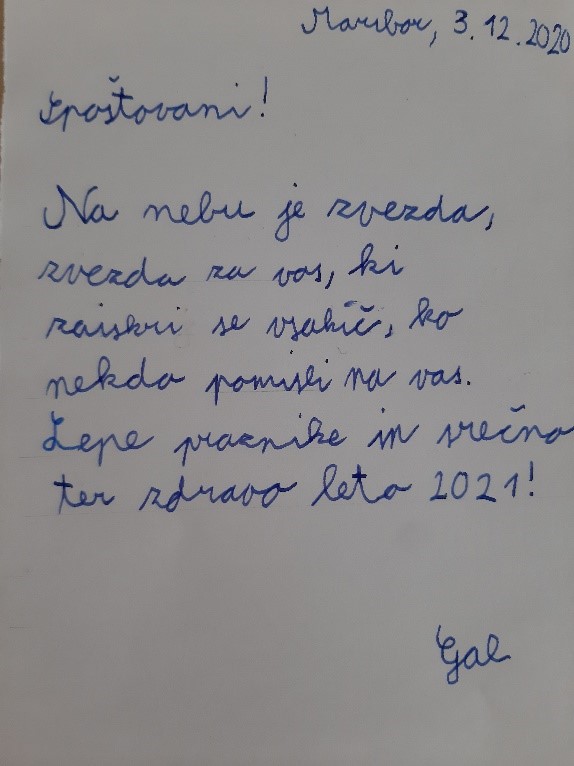 Maribor, 3.12.2020
Spoštovani!
Na nebu je zvezda,
zvezda za vas, ki
zaiskri se vsakič, ko
nekdo pomisli na vas.
Lepe praznike in srečno
ter zdravo leto 2021!
Gal